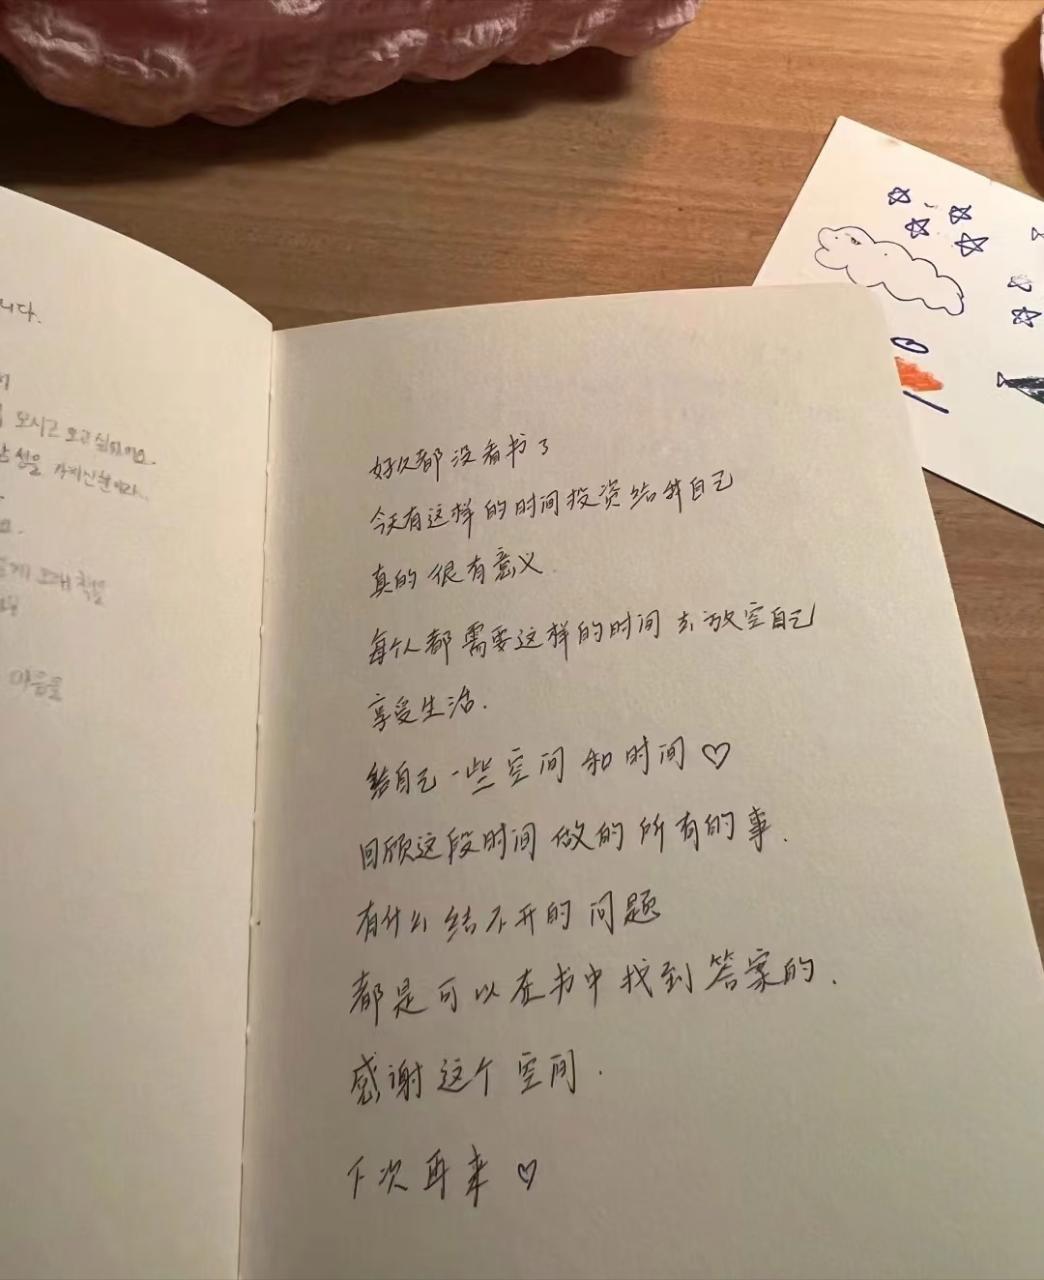 니다.
모시고 오고 싶네요.
마음을
好久都没看书了
今天有这样的时间投资给我自己
真的很有意义.
每个人都需要这样的时间去放空自己
享受生活.
给自己一些空间和时间♡
回顾这段时间做的所有的事.
有什么结不开的问题
都是可以在书中找到答案的.
感谢这个空间.
下次再来♡